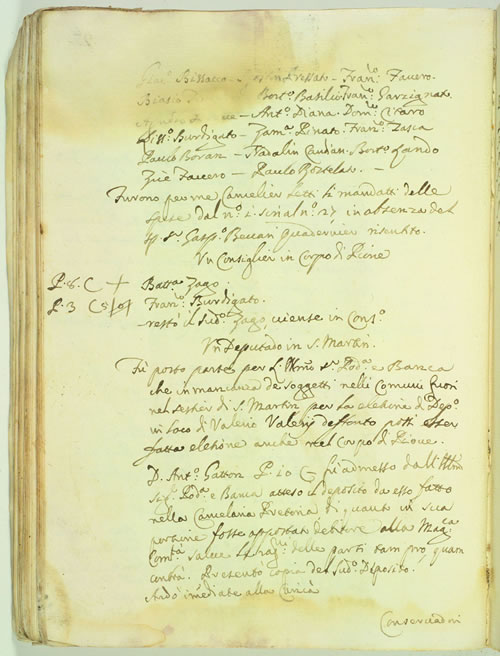 Giac.º Bissacca - Fran.º Favero.
Biasio Bort.º Basilio Fran.º Garzignato
Ant.º Diana Dom.º
Burdigato - Zam.ª Pinato Fran.º Zasca
Paulo Boran - Nadalin Candian Bort.º
Favero - Paulo
Furono per me Cancelier letti li mandatti delle
spese dal n.º 1 sin al n.º 27 in absenza del
Sp. Sr. Gasp.º Beccari quadernier
Un Consiglier in Corpo di Pieve
P. 8. C Batt.ª Zago
P. 3 C Fran.º Burdigato.
restò il Sud.º Zago in Cons.º
Un Deputado in S. Martin.
Fù posto parte per L'Ill.mo Sr. Pod.ª e Banca
che in mancanza de Soggetti nelli Comuni fuori
nel Sestier di S. Martin per la elettione di Dep.º
in loco di Valerio Valerij deffonto possi esser
fatta elettione anche nel Corpo di Pieve.
D. Ant.º Gatton P. 10 C fù admesso dall'Ill.mo
Sig.r Pod.ª e Banca atteso il deposito da esso fatto
nella Cancelaria Pretoria di quanto in sua
portione fosse debitore alla Mag.ca
Com.tà salve delle parti tam pro, quam
contra. Presentò copia del Sud.º Deposito.
Andò imediate alla
Conservadori